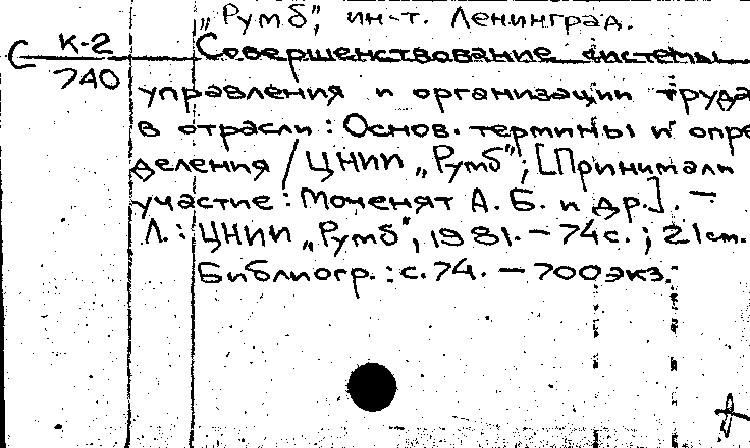 „Румб", ин-т. Ленинград.
С К-2 Совершенствование системы
740 управления и организации труда
в отрасли: Основ. термины и опре
деления / ЦНИИ „Румб"; [Принимали
участие: Моченят А. Б. и др.]. —
Л.: ЦНИИ „Румб", 1981. — 74с.; 21см.
Библиогр.: с. 74. — 700 экз.